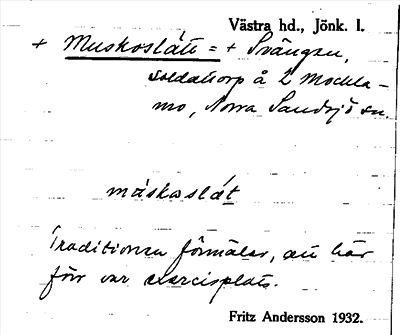 Västra hd., Jönk. l.
+ Muskoslätt = + Svängen,
soldattorp å 2 Mockla-
mo, Norra Sandsjö sn.
máskoslǽt
Traditionen förmäler, att här
förr var exercisplats.
Fritz Andersson 1932.